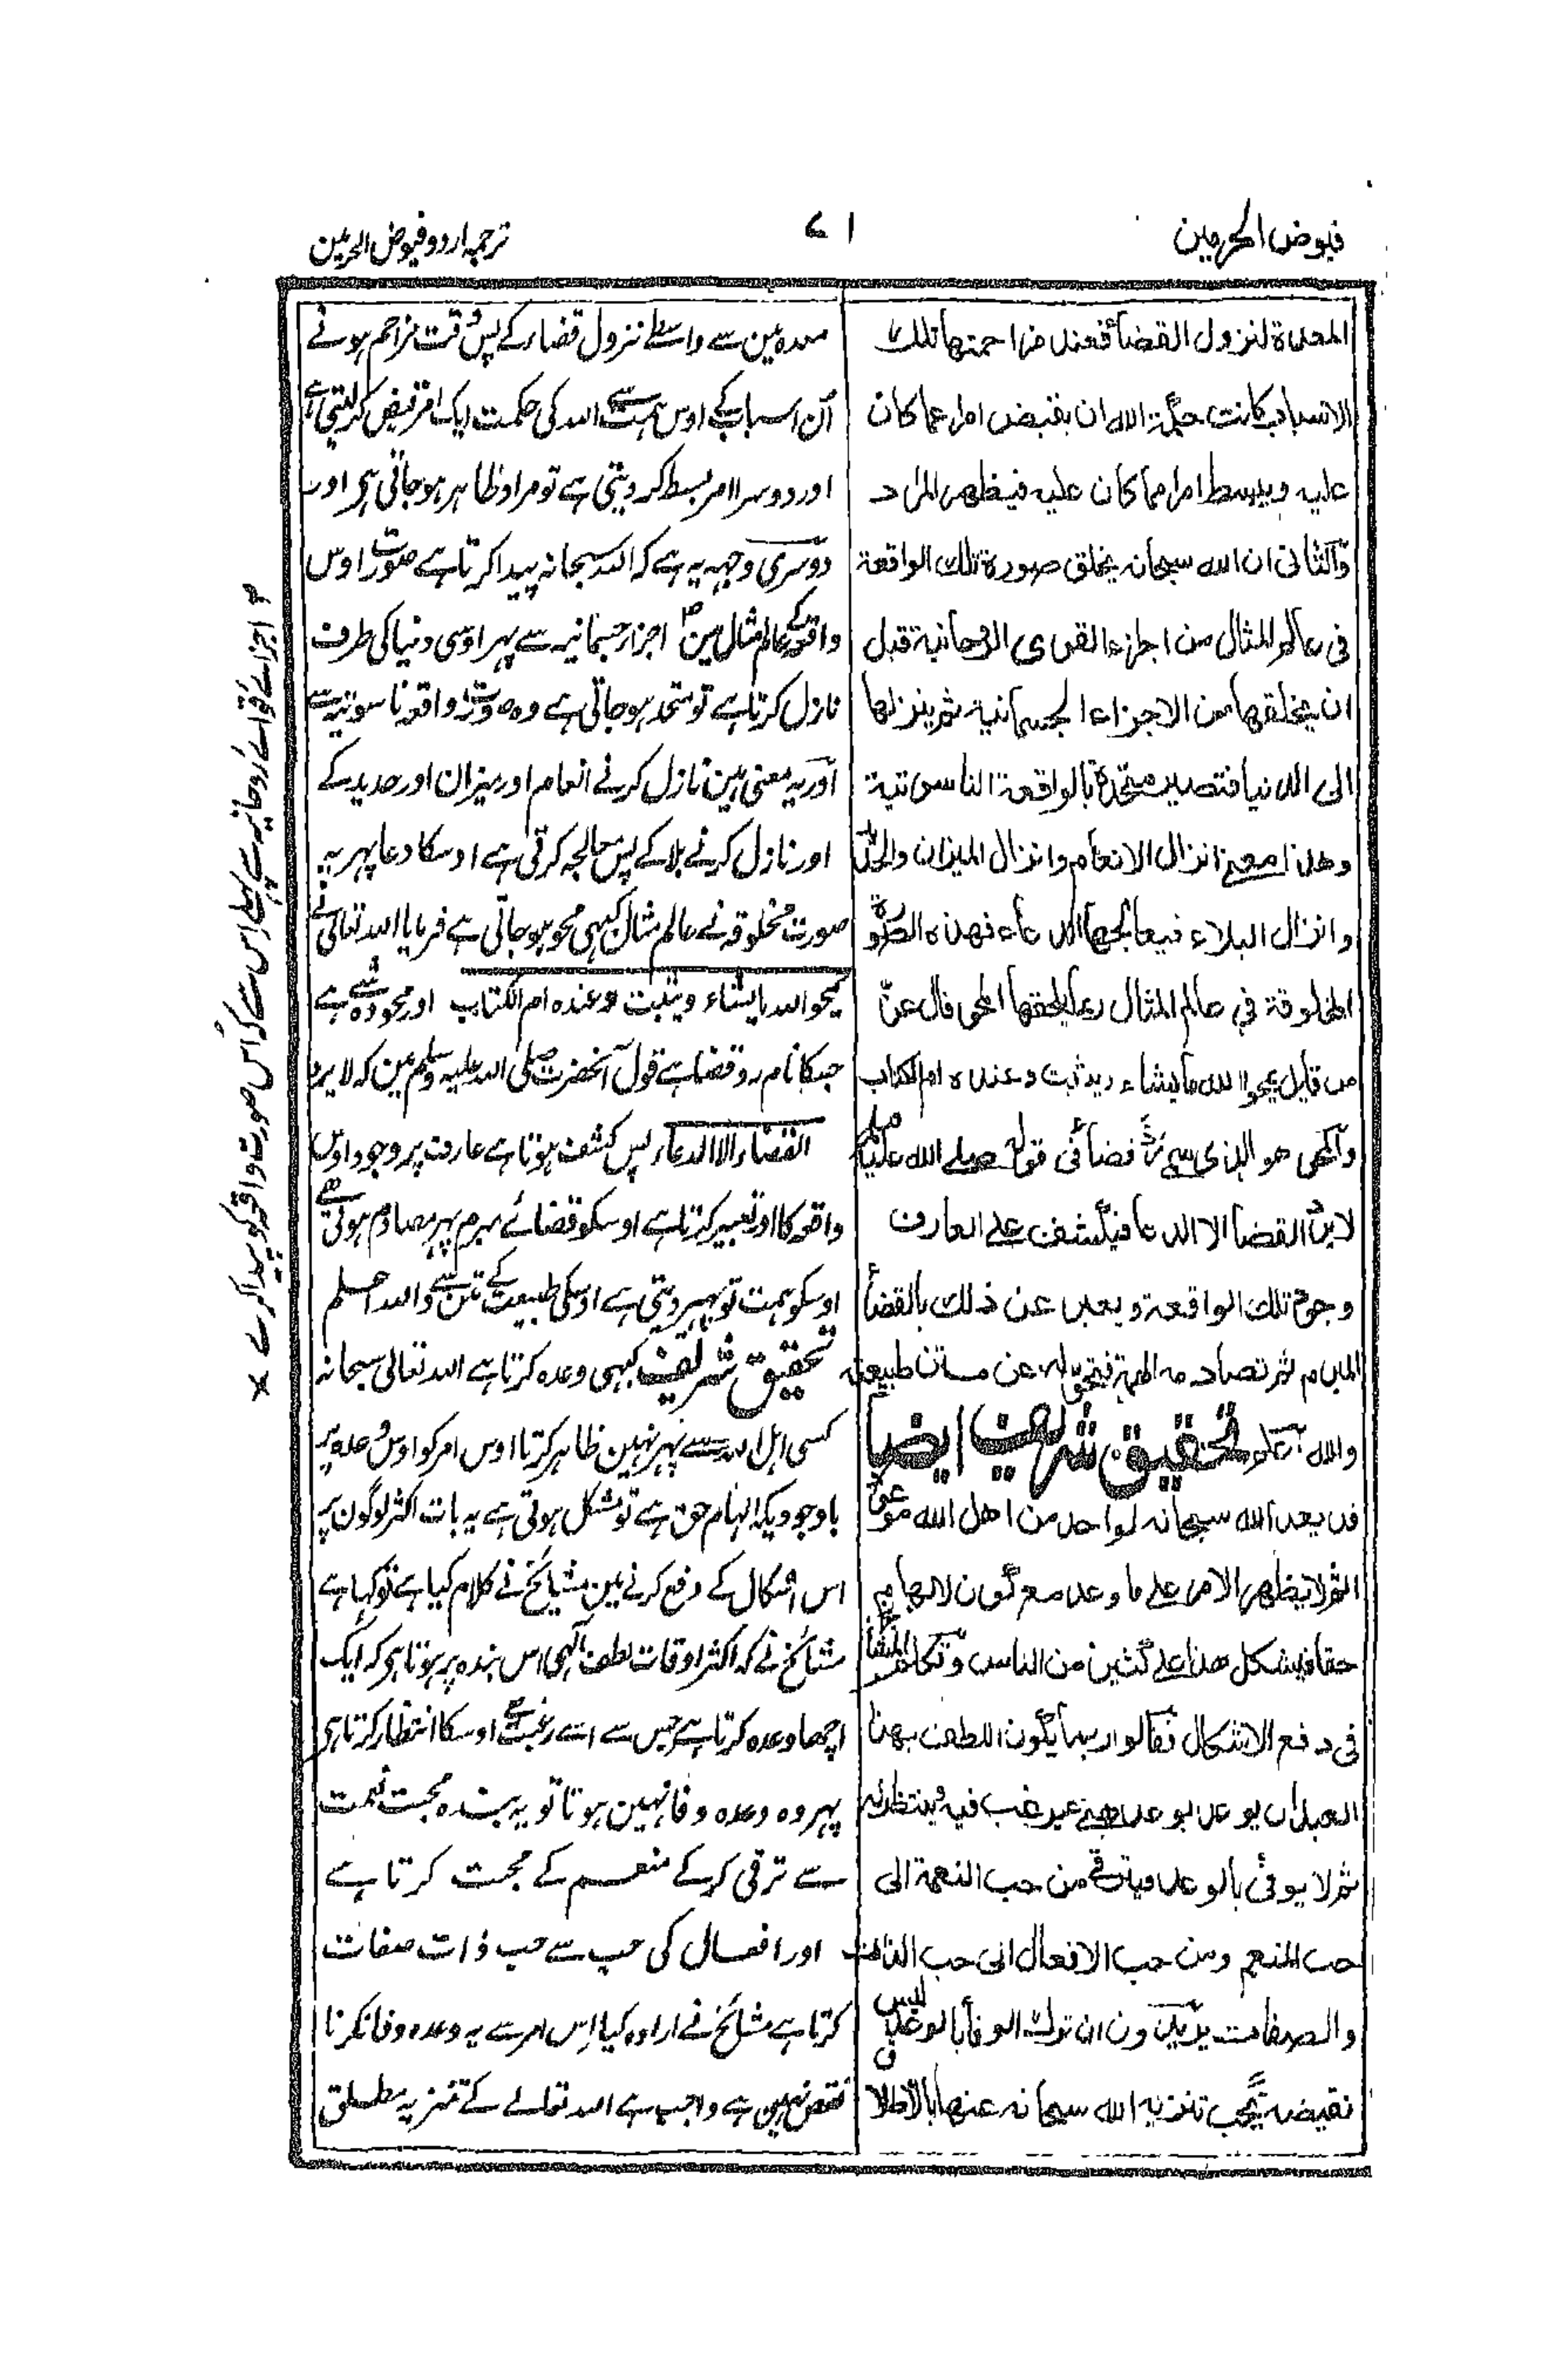 فیوض الحرمین
۷۱
ترجمہ اردو فیوض الحرمین
المعدة لنزول القضاء فعند مزاحمتها تلك
الاسباب كانت حكمة الله ان يقبض امرا عما كان
عليه ويبسط امرا مما كان عليه فيظهر المراد
والثانى ان الله سبحانه يخلق صورة تلك الواقعة
فى عالم المثال من اجزاء القوى الروحانية قبل
ان يخلقها من الاجزاء الجسمانية ثم ينزلها
الى الدنيا فتصير متحدة بالواقعة الناسوتية
وهذا معنى انزال الانعام وانزال الميزان والحديد
وانزال البلاء فيعالجها الدعاء فهذه الصورة
المخلوقة في عالم المثال ربما يلحقها المحو قال عز
من قايل يمحوا الله ما يشاء ويثبت وعنده ام الكتاب
والمحو هو الذى سمى رد قضا فى قوله صلى الله عليه وسلم
لا يرد القضا الا الدعا فينكشف على العارف
وجود تلك الواقعة ويعبر عن ذلك بالقضا
المبرم ثم تصادمه الهمة فتحق له عن طبيعته
والله اعلم تحقيق شريف ايضا
قد يعد الله سبحانه لواحد من اهل الله موعدا
ثم لا يظهر الامر على ما وعد مع كون الالهام
حقا فيشكل هذا على كثير من الناس وتكلم المشايخ
فى دفع الاشكال فقالوا ربما يكون اللطف بهذا
العبد ان يوعد بوعد حسن يرغب فيه وينتظر له
ثم لا يوفى بالوعد فيترقى من حب النعمة الى
حب المنعم ومن حب الافعال الى حب الذات
والصفات يريدون ان ترك الوفا بالوعد ليس
نقيصة يجب تنزيه الله سبحانه عنها بالاطلاق
معدہ ہین سے واسطے نزول قضاء کے پس وقت مزاحم ہونے
اُن اسباب کے اوس ہمت سے اللہ کی حکمت ایک امر قبض کر لیتی ہے
اور دوسرا امر بسط کر دیتی ہے تو مراد ظاہر ہو جاتی ہی اور
دوسری وجہہ یہ ہے کہ اللہ سبحانہ پیدا کرتا ہے صورت اوس
واقعہ کے عالم مثال مین اجزاء جسمانیہ سے پہر اوسی دنیا کی طرف
نازل کرتا ہے تو متحد ہو جاتی ہے وہ صورت واقعہ ناسوتیہ سے
اور یہ معنی ہین نازل کرنے انعام اور میزان اور حدید کے
اور نازل کرنے بلا کے پس معالجہ کرتی ہے اوسکا دعا پہر یہ
صورت مخلوقہ نے عالم مثال کبہی محو ہو جاتی ہے فرمایا اللہ تعالی نے
یمحو اللہ ما یشاء ویثبت وعندہ ام الکتاب اور محو وہ شے ہے
جسکا نام رد قضا ہے قول آنحضرت صلی اللہ علیہ وسلم مین کہ لا یرد
القضاء الا الدعاء پس کشف ہوتا ہے عارف پر وجود اوس
واقعہ کا اور تعبیر کرتا ہے اوسکو قضائے مبرم پہر مصادم ہوتی ہے
اوسکو ہمت تو پہیر دیتی ہے اوسکی طبیعت کے سے واللہ اعلم
تحقیق شریف کبہی وعدہ کرتا ہے اللہ تعالی سبحانہ
کسی اہل اللہ سے پہر نہین ظاہر کرتا اوس امر کو اوس وعدہ پر
باوجودیکہ الہام حق ہے تو مشکل ہوتی ہے یہ بات اکثر لوگون پر
اس اشکال کے دفع کرنے مین مشایخ نے کلام کیا ہے تو کہا ہے
مشائخ نے کہ اکثر اوقات لطف الٰہی اس بندہ پر ہوتا ہی کہ ایک
اچھا وعدہ کرتا ہے جس سے اسے رغبت ہے اوسکا انتظار کرتا ہی
پہر وہ وعدہ وفا نہین ہوتا تو یہ بندہ محبت نعمت
سے ترقی کر کے منعم کے محبت کرتا ہے
اور افعال کی حب سے حب ذات صفات
کرتا ہے مشائخ نے ارادہ کیا اِس امر سے یہ وعدہ وفا نکرنا
نقص نہین ہے واجب ہے اللہ تعالے کے تنزیہ مطلق
اجزائے قوائے روحانیہ سے پہلے اس سے کہ اُس صورت واقعہ کو پیدا کرے